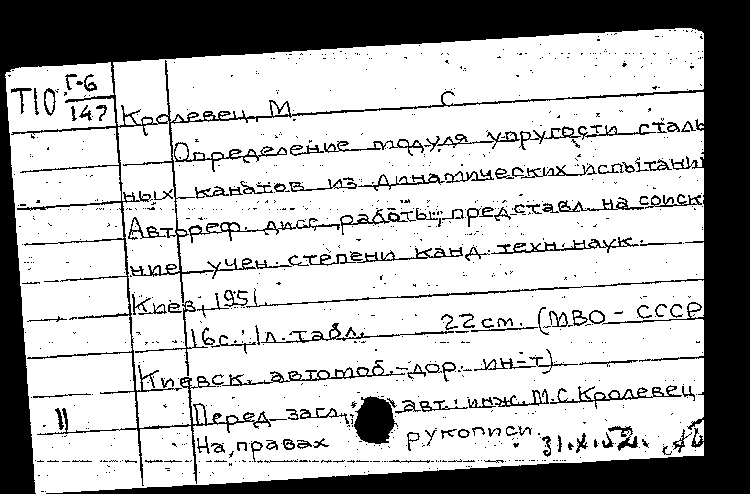 Т10 Г-6
147
Кролевец, М. С
Определение модуля упругости сталь
ных канатов из динамических испытаний
Автореф. дисс. работы, представл. на соиск
ние учен. степени канд. техн. наук.
Киев, 1951.
16с.; 1л. табл. 22см. (МВО - СССР
Киевск. автомоб.-дор. ин-т)
11 Перед загл. авт.: инж. М.С. Кролевец
На правах рукописи. 31.X.52.